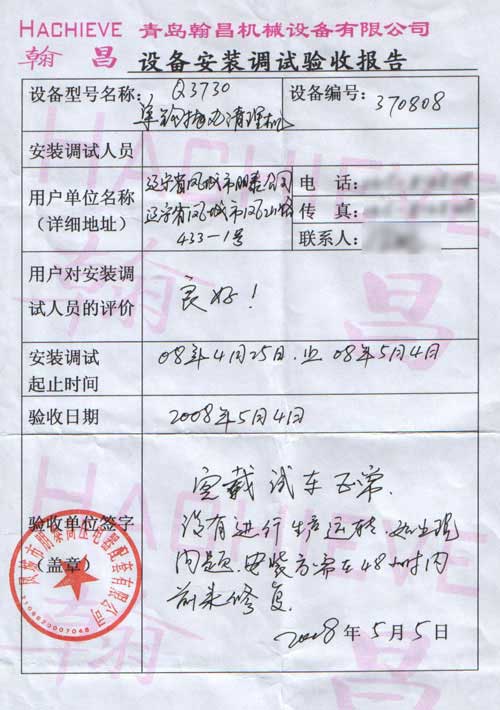 HACHIEVE 青岛翰昌机械设备有限公司
翰 昌 设备安装调试验收报告
设备型号名称: Q3730 设备编号: 370808
单钩抛丸清理机
安装调试人员
用户单位名称 辽宁省凤城市朋泰公司 电 话:
(详细地址) 辽宁省凤城市凤山路 传 真:
433-1号 联系人:
用户对安装调 良好!
试人员的评价
安装调试 08年4月25日.止 08年5月4日
起止时间
验收日期 2008年5月4日
空载试车正常.
验收单位签字 没有进行生产运转.如出现
(盖章) 问题.安装方需在48小时内
前来修复.
2008年5月5日